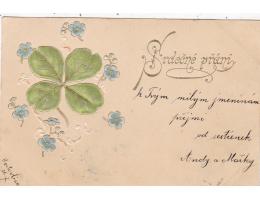 Srdečné přání
k Tvým milým jmeninám
přejme
od sestřenek
Andy a Mařky